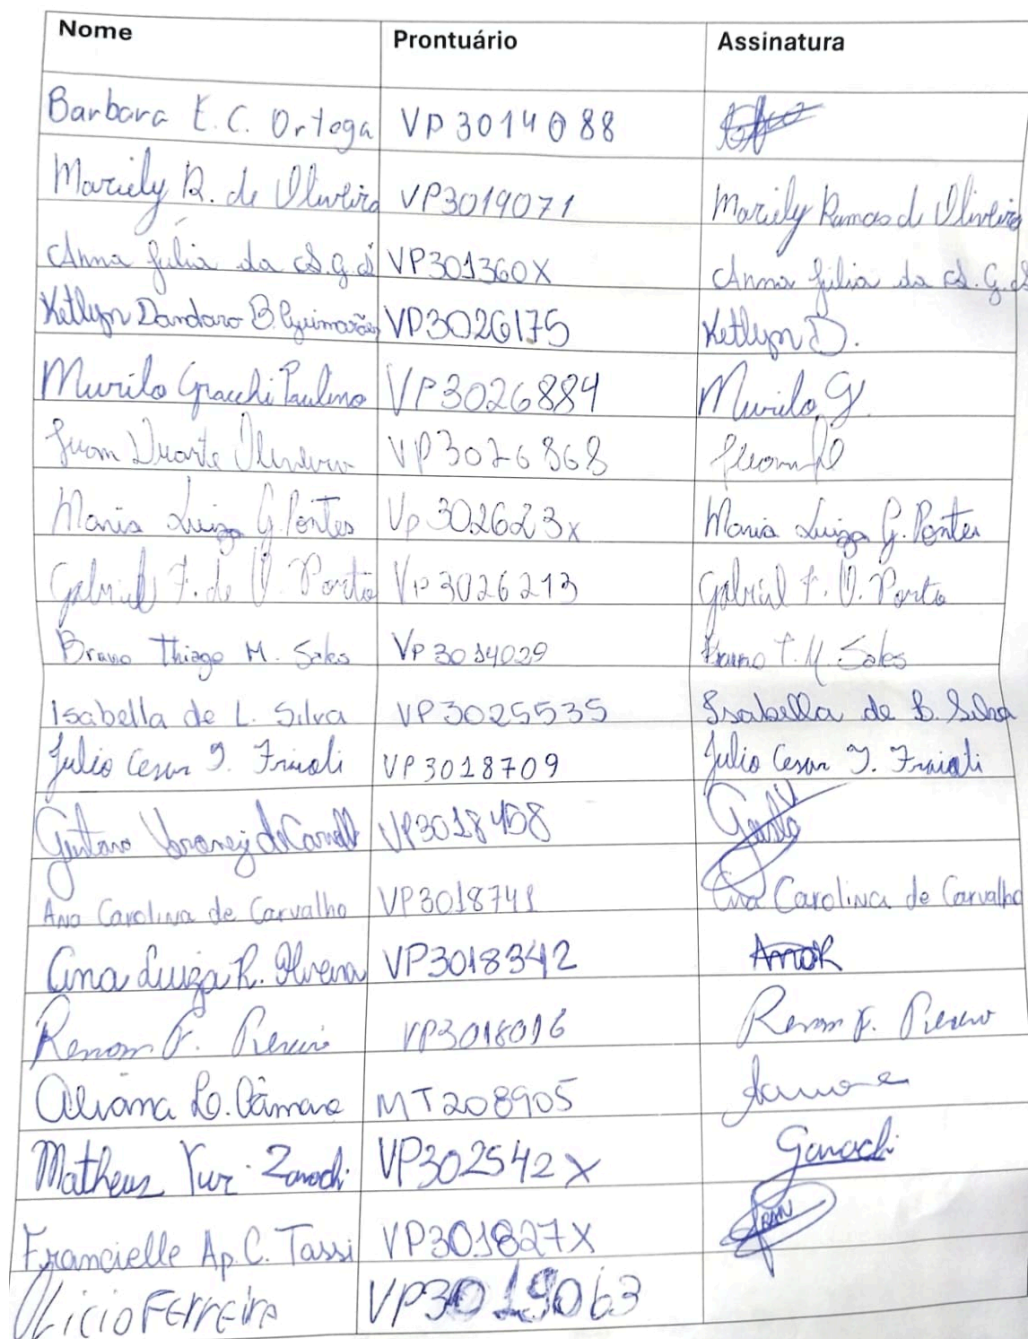 Nome Prontuário Assinatura
Barbara E. C. Ortega VP3014088
Mariely R. de Oliveira VP3019071 Mariely Ramos de Oliveira
Anna Júlia da S. G. S VP301360X Anna Júlia da S. G. S
Ketllyn Dandara B. Guimarães VP3026175 Ketllyn D.
Murilo Gracchi Paulino VP3026884 Murilo G.
Juan Duarte VP3026868
Maria Luiza G. Pontes Vp 302623x Maria Luiza G. Pontes
Gabriel F. de O. Porto VP3026213 Gabriel F. O. Porto
Bruno Thiago M. Sales VP3014029 Bruno T. M. Sales
Isabella de L. Silva VP3025535 Isabella de L. Silva
Julio Cesar I. Fraioli VP3018709 Julio Cesar I. Fraioli
Gustavo VP3018458
Ana Carolina de Carvalho VP3018741 Ana Carolina de Carvalho
Ana Luiza R. Oliveira VP3018342 AnaR
Renan F. Pereira VP3018016 Renan F. Pereira
L. Câmara MT208905
Matheus Yuri Zanochi VP302542X Zanochi
Francielle Ap. C. Tassi VP301827X FRAN
Olicio FERREIRA VP3019063